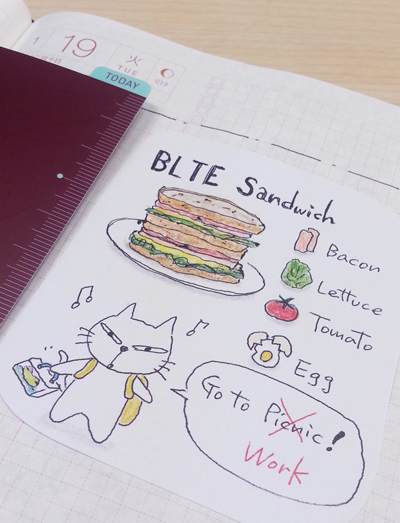 19
火
TUE
TODAY
BLTE Sandwich
Bacon
Lettuce
Tomato
Egg
Go to Picnic!
Work